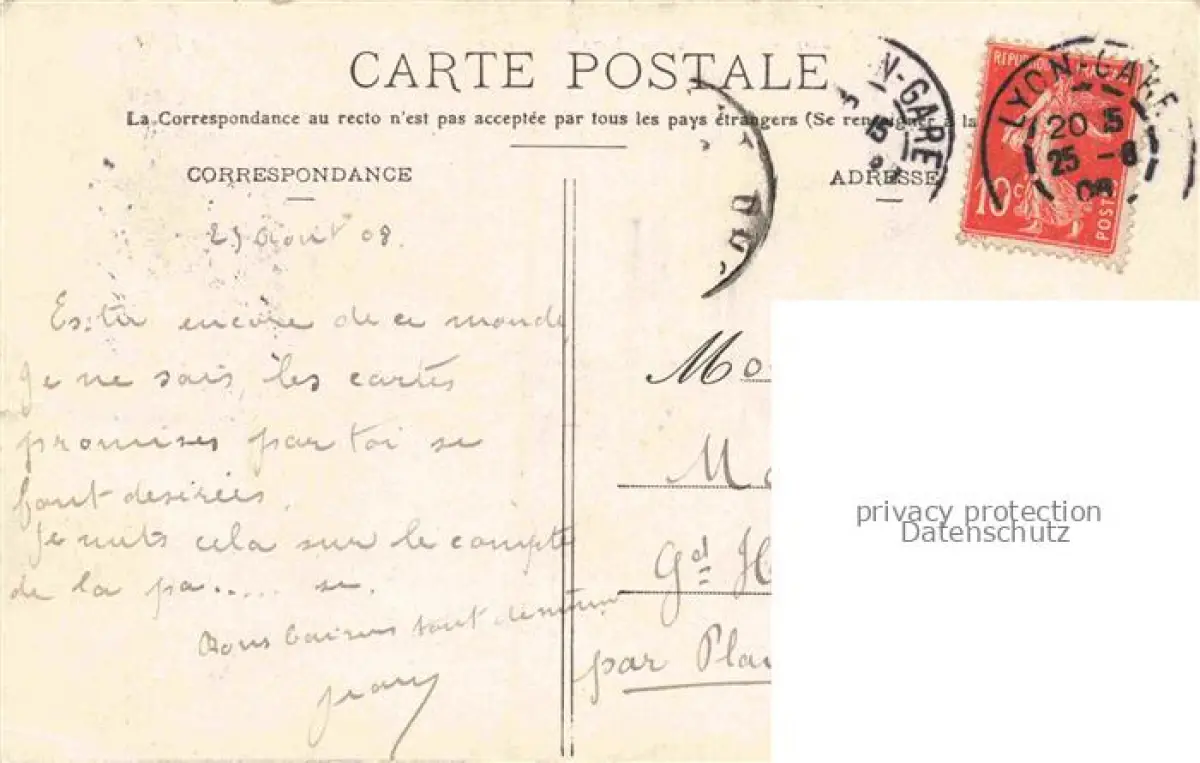 CARTE POSTALE
La Correspondance au recto n'est pas acceptée par tous les pays étrangers (Se renseigner à la
CORRESPONDANCE
ADRESSE
N-GARE
15
REPUBLIQUE FRANÇAISE
10c
POSTES
LYON-GARE
20 15
25 -8
08
25 août 08.
Es-tu encore de ce monde
je ne sais, les cartes
promises par toi se
font desirées.
Je mets cela sur le compte
de la pa..... se.
Bons baisers tout de même
Mo
Ma
Gd H
par Pla
privacy protection
Datenschutz